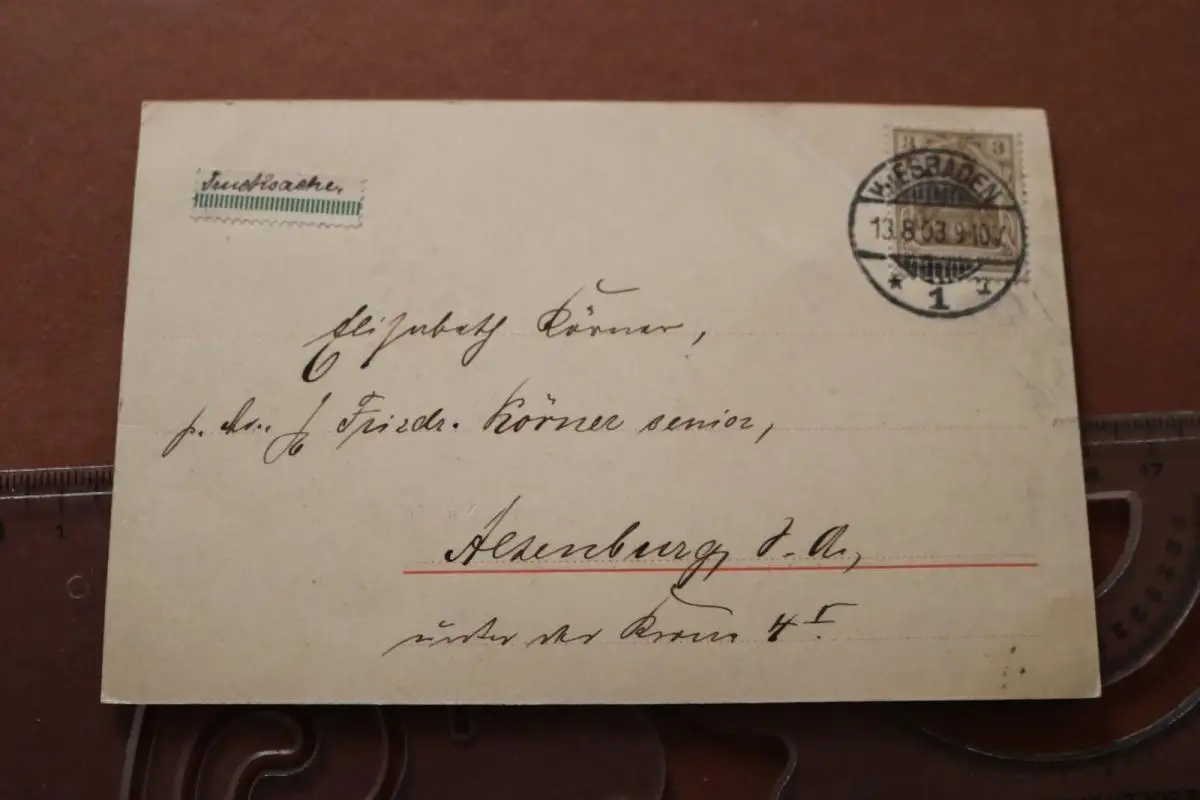 Drucksache.
3 3
WIESBADEN
13.8.03.9-10
* 1
Elisabeth Körner,
Friedr. Körner senior,
Altenburg, S. A.,
unter der Krone 4 I.
1
17